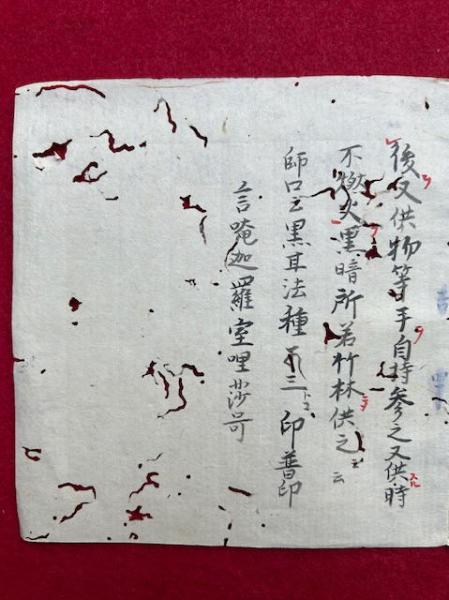 後又供物等手自持参之又供時
不燃火黒暗所若竹林供之云云
師口云黒耳法種三印普印
言唵迦羅室哩莎呵